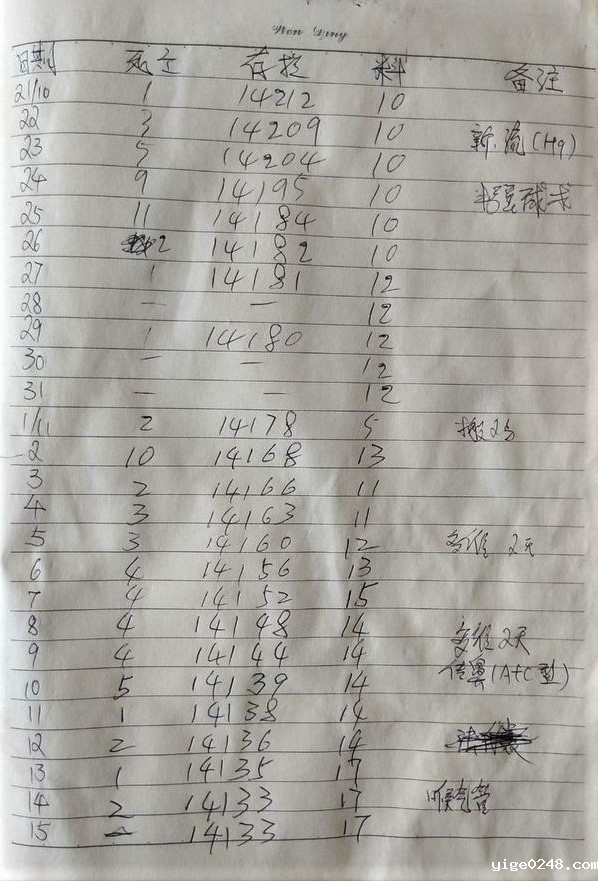 Wen Ding
日期 死亡 存栏 料 备注
21/10 1 14212 10
22 3 14209 10 新.流(H9)
23 5 14204 10
24 9 14195 10
25 11 14184 10
26 2 14182 10
27 1 14181 12
28 — — 12
29 1 14180 12
30 — — 12
31 — — 12
1/11 2 14178 5
2 10 14168 13
3 2 14166 11
4 3 14163 11
5 3 14160 12 多维 2天
6 4 14156 13
7 4 14152 15
8 4 14148 14 多维2天
9 4 14144 14 传鼻(A+C型)
10 5 14139 14
11 1 14138 14
12 2 14136 14
13 1 14135 17
14 2 14133 17 喉气管
15 — 14133 17
www.yige0248.com